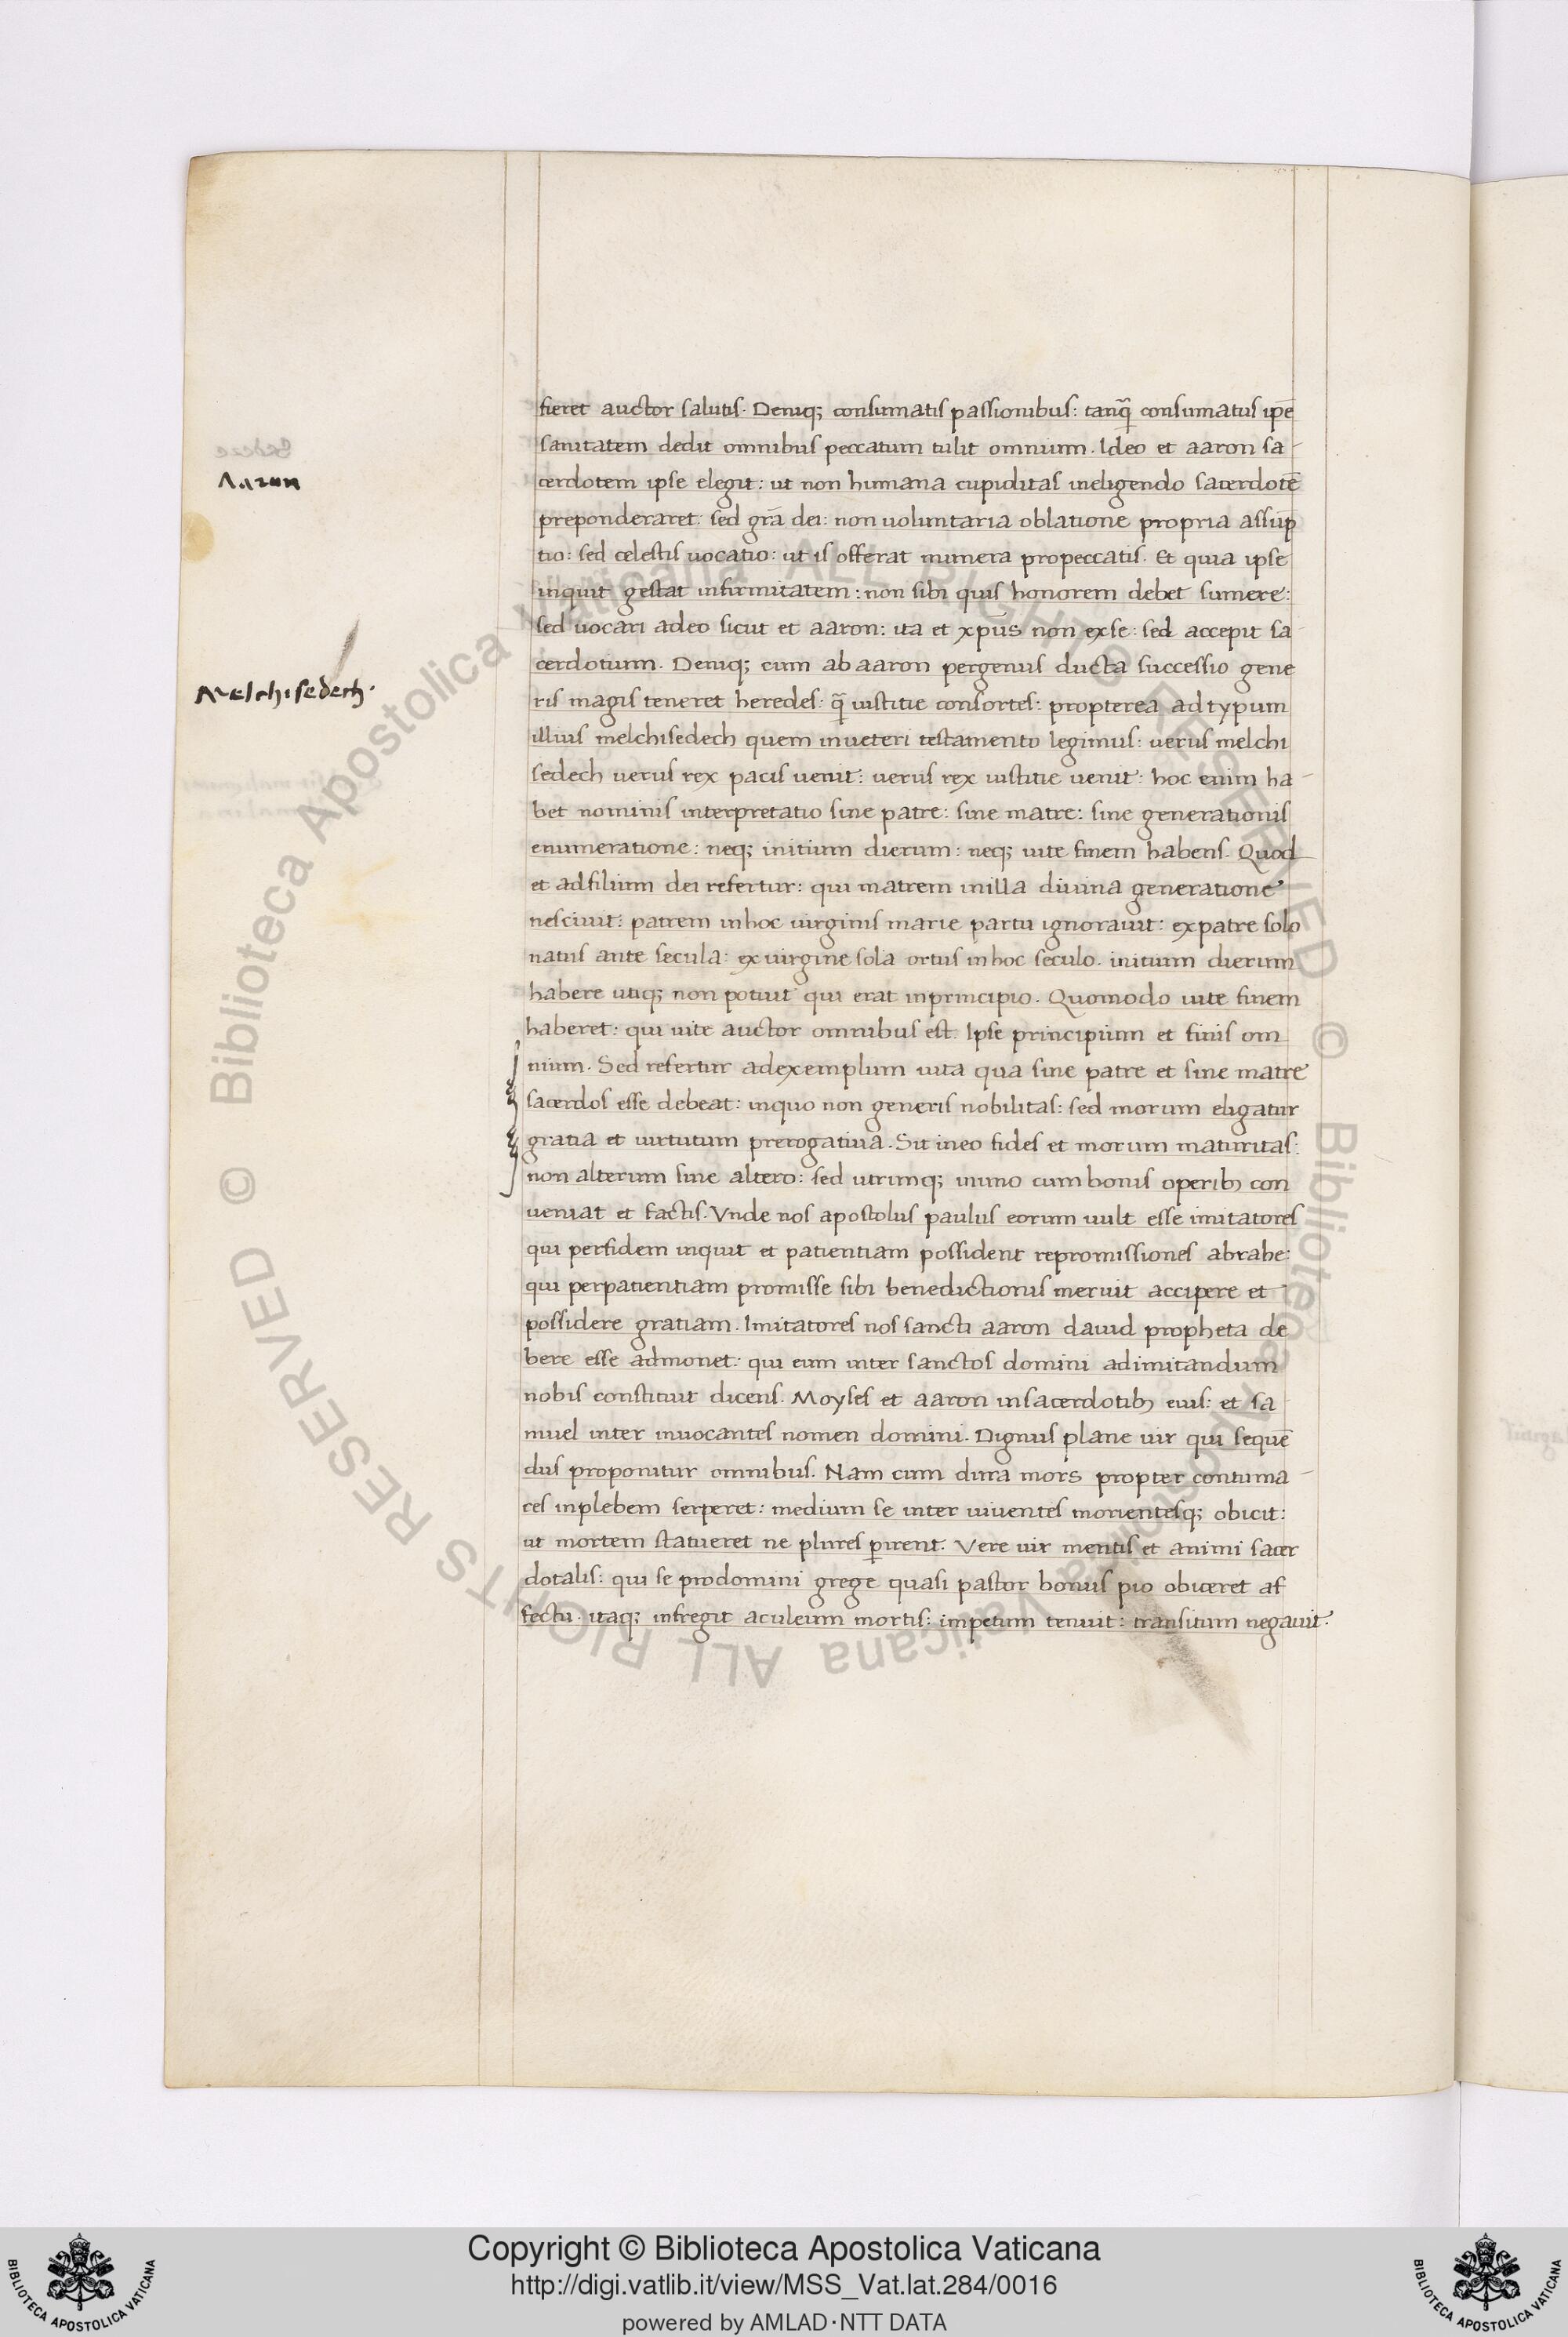 fieret auctor salutis. Deniq; consumatis passionibus: tanq̃ consumatus ip̄e
sanitatem dedit omnibus peccatum tulit omnium. Ideo et aaron sa-
cerdotem ipse elegit: ut non humana cupiditas ineligendo sacerdotē
preponderaret: sed grā dei: non uoluntaria oblatione propria assūp
tio: sed celestis uocatio: ut is offerat munera propeccatis. Et quia ipse
inquit gestat infirmitatem: non sibi quis honorem debet sumere:
sed uocari adeo sicut et aaron: ita et xp̄us non exse: sed accepit sa-
cerdotium. Deniq; cum ab aaron pergenus ducta successio gene
ris magis teneret heredes: q̃ iustitie consortes: propterea ad typum
illius melchisedech quem inueteri testamento legimus: uerus melchi
sedech uerus rex pacis uenit: uerus rex iustitie uenit: hoc enim ha-
bet nominis interpretatio sine patre: sine matre: sine generationis
enumeratione: neq; initium dierum: neq; uite finem habens. Quod
et adfilium dei refertur: qui matrem inilla diuina generatione
nesciuit: patrem inhoc uirginis marie partu ignorauit: expatre solo
natus ante secula: ex uirgine sola ortus inhoc seculo. initium dierum
habere utiq; non potuit qui erat inprincipio. Quomodo uite finem
haberet: qui uite auctor omnibus est. Ipse principium et finis om
nium. Sed refertur adexemplum uita qua sine patre et sine matre
sacerdos esse debeat: inquo non generis nobilitas: sed morum eligatur
gratia et uirtutum prerogatiua. Sit ineo fides et morum maturitas:
non alterum sine altero: sed utrunq; inuno cum bonis operib; con
ueniat et factis. Vnde nos apostolus paulus eorum uult esse imitatores
qui perfidem inquit et patientiam possident repromissiones abrahe:
qui perpatientiam promisse sibi benedictionis meruit accipere et
possidere gratiam. Imitatores nos sancti aaron dauid propheta de
bere esse admonet: qui eum inter sanctos domini adimitandum
nobis constituit dicens. Moyses et aaron insacerdotib; eius: et sa
muel inter inuocantes nomen domini. Dignus plane uir qui sequē
dus proponitur omnibus. Nam cum dira mors propter contuma-
ces inplebem serperet: medium se inter uiuentes morientesq; obicit:
ut mortem statueret ne plures ꝑirent. Vere uir mentis et animi sacer
dotalis: qui se prodomini grege quasi pastor bonus pio obiceret af
fectu. itaq; infregit aculeum mortis: impetum tenuit: transitum negauit.
Aaron
Melchisedech.
© Biblioteca Apostolica Vaticana ALL RIGHTS RESERVED © Biblioteca Apostolica Vaticana ALL RIGHTS RESERVED
Copyright © Biblioteca Apostolica Vaticana
http://digi.vatlib.it/view/MSS_Vat.lat.284/0016
powered by AMLAD·NTT DATA
BIBLIOTECA APOSTOLICA VATICANA
BIBLIOTECA APOSTOLICA VATICANA